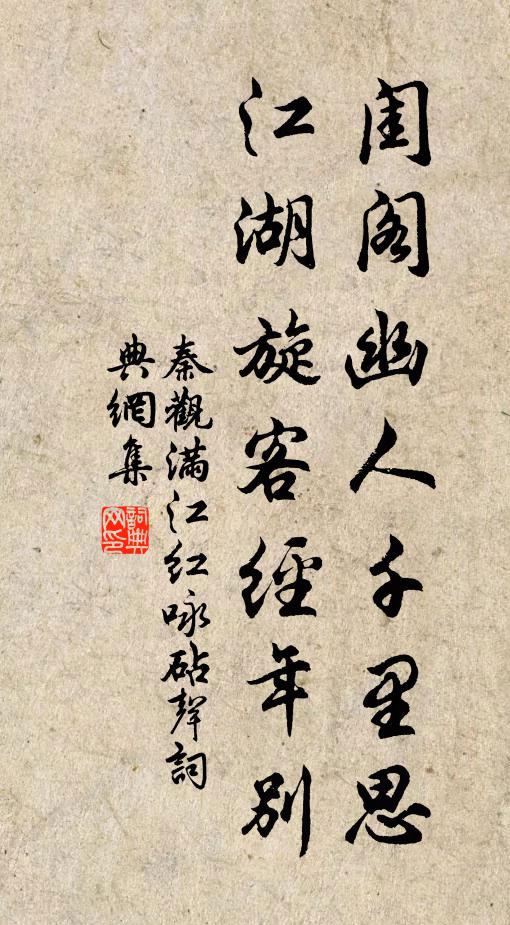 闺阁幽人千里思
江湖旋客經年別
秦觀滿江红咏砧聲詞
典網集
詞典网印